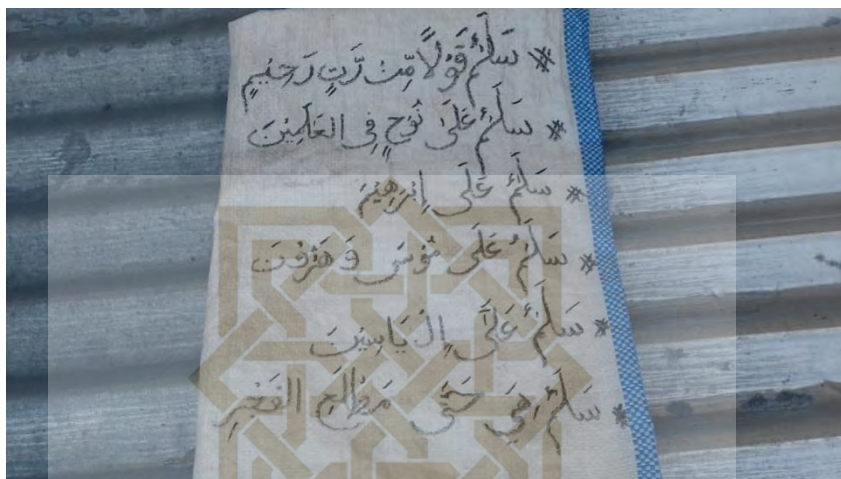 * سَلٰمٌ قَوْلًا مِّنْ رَّبٍّ رَحِيْمٍ
* سَلٰمٌ عَلٰى نُوْحٍ فِى الْعٰلَمِيْنَ
* سَلٰمٌ عَلٰى اِبْرٰهِيْمَ
* سَلٰمٌ عَلٰى مُوْسٰى وَ هٰرُوْنَ
* سَلٰمٌ عَلٰى اِلْ يَاسِيْنَ
* سَلٰمٌ هِيَ حَتّٰى مَطْلَعِ الْفَجْرِ